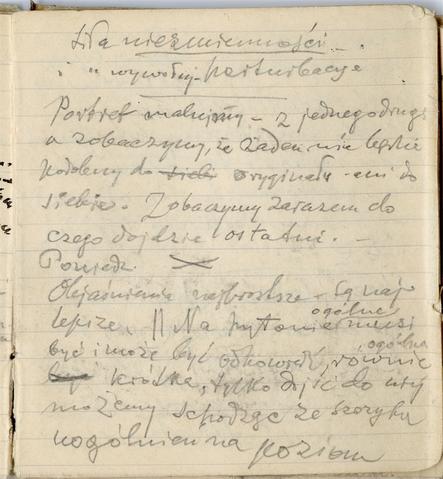 siła niezmienności
i "wywołuj. perturbacje
Portret malujemy – z jednego drugi
a zobaczymy, że żaden nie będzie
podobny do siebi oryginału – ani do
siebie. Zobaczymy zarazem do
czego dojdzie ostatni. –
Objaśnienia najprostsze – są naj-
lepsze. || Na pytanie ogólne musi
być i może być odpowiedź, równie ogólna
krótka, tylko dojść do niej
możemy schodząc ze szczytu
uogólnień na poziom